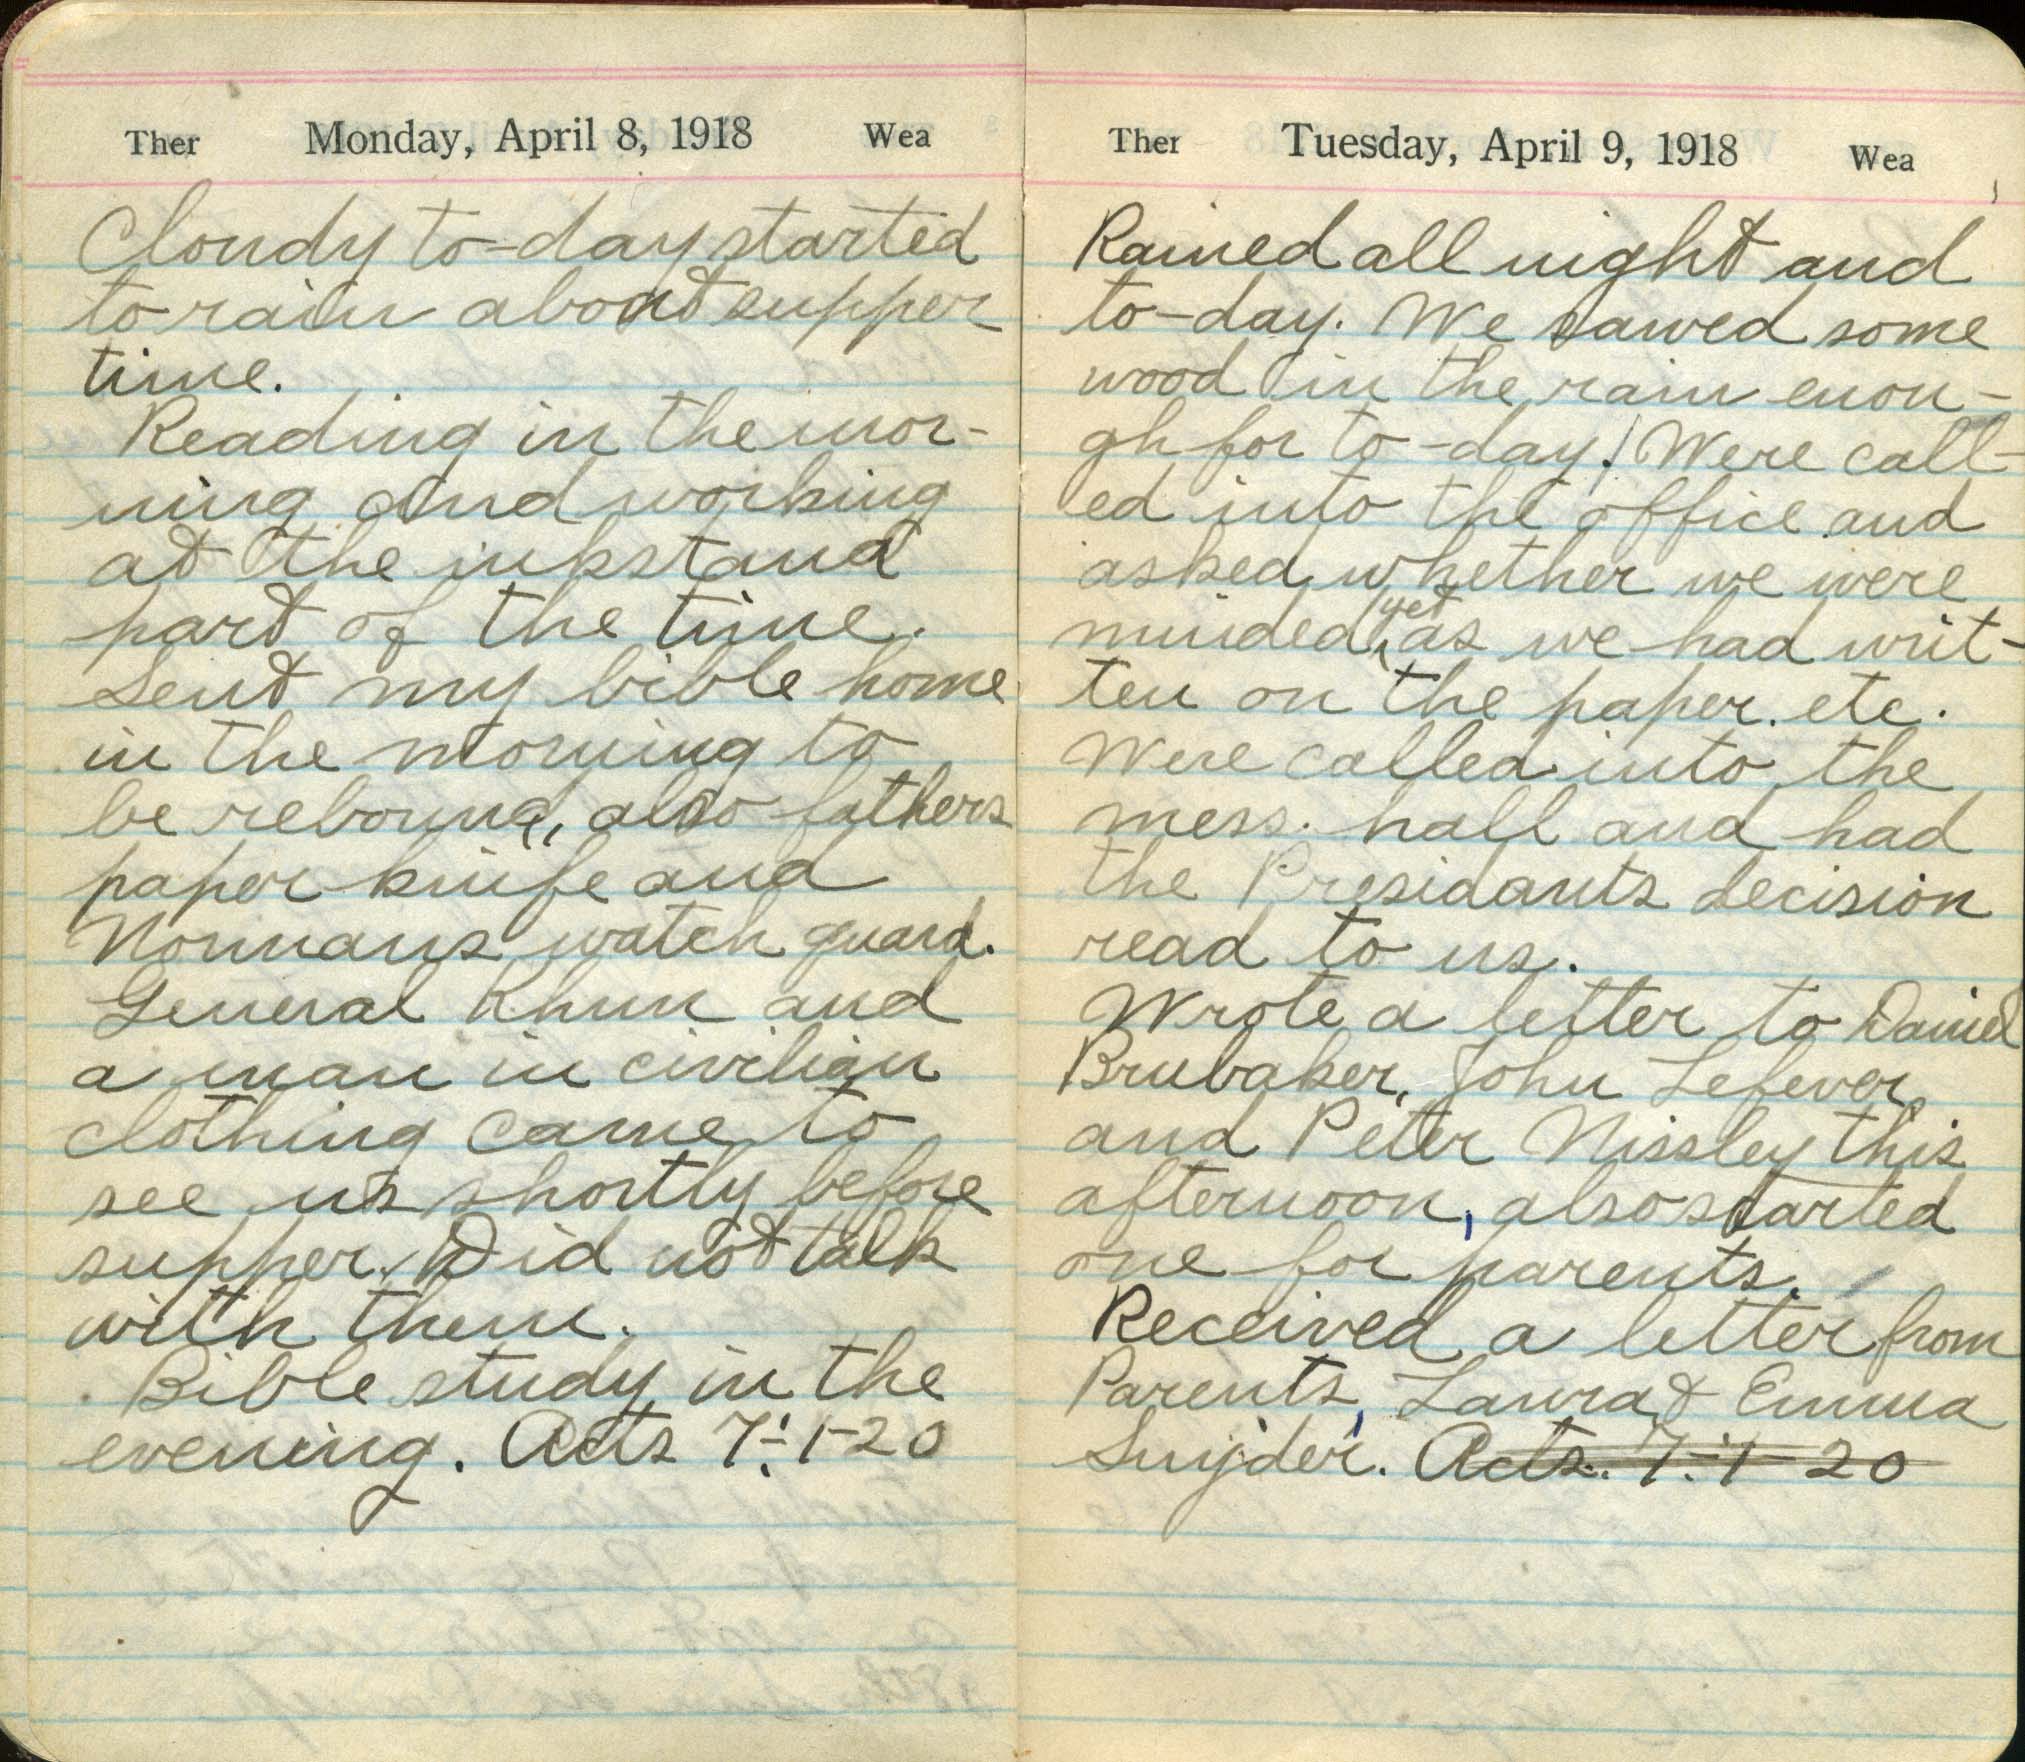 Ther Monday, April 8, 1918 Wea
Cloudy to-day started
to rain about supper
time.
Reading in the mor-
ning and working
at the inkstand
part of the time.
Sent my bible home
in the morning to
be rebound, also fathers
paper knife and
Normans watch guard.
General Khun and
a man in civilian
clothing came to
see us shortly before
supper. Did not talk
with them.
Bible study in the
evening. Acts 7:1-20
Ther Tuesday, April 9, 1918 Wea
Rained all night and
to-day. We sawed some
wood in the rain enou-
gh for to-day. Were call-
ed into the office and
asked whether we were
minded yet as we had writ-
ten on the paper. etc.
Were called into the
mess. hall and had
the Presidants decision
read to us.
Wrote a letter to Daniel
Brubaker, John Lefever
and Peter Nissley this
afternoon, also started
one for parents.
Received a letter from
Parents, Laura & Emma
Snyder. Acts. 7:1-20